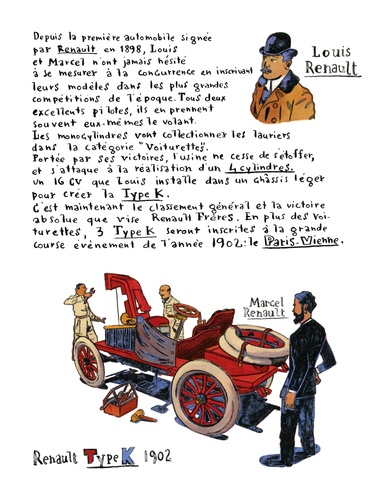 Depuis la première automobile signée
par Renault en 1898, Louis
et Marcel n'ont jamais hésité
à se mesurer à la concurrence en inscrivant
leurs modèles dans les plus grandes
compétitions de l'époque. Tous deux
excellents pilotes, ils en prennent
souvent eux-mêmes le volant.
Les monocylindres vont collectionner les lauriers
dans la catégorie "Voiturettes".
Portée par ses victoires, l'usine ne cesse de s'étoffer,
et s'attaque à la réalisation d'un 4 cylindres.
un 16 CV que Louis installe dans un châssis léger
pour créer la Type K.
C'est maintenant le classement général et la victoire
absolue que vise Renault Frères. En plus des voi-
turettes, 3 Type K seront inscrites à la grande
course évènement de l'année 1902: le Paris-Vienne.
Louis
Renault
Marcel
Renault
Renault Type K 1902